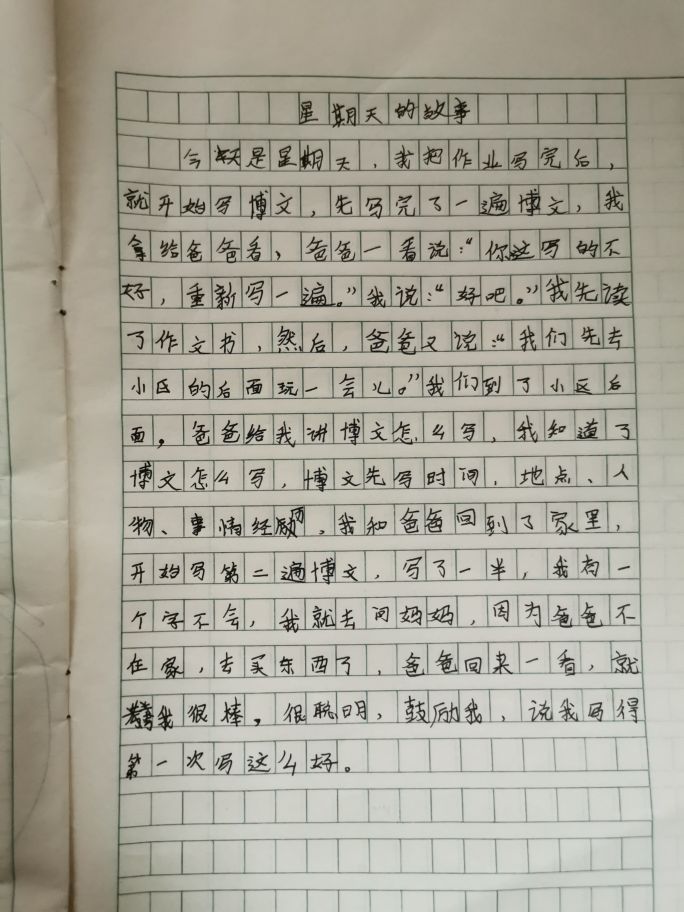 星期天的故事
今天是星期天，我把作业写完后，
就开始写博文，先写完了一遍博文，我
拿给爸爸看，爸爸一看说：“你这写的不
好，重新写一遍。”我说：“好吧。”我先读
了作文书，然后，爸爸又说：“我们先去
小区的后面玩一会儿。”我们到了小区后
面，爸爸给我讲博文怎么写，我知道了
博文怎么写，博文先写时间，地点、人
物、事情经历，我和爸爸回到了家里，
开始写第二遍博文，写了一半，我有一
个字不会，我就去问妈妈，因为爸爸不
在家，去买东西了，爸爸回来一看，就
我很棒，很聪明，鼓励我，说我写得
第一次写这么好。